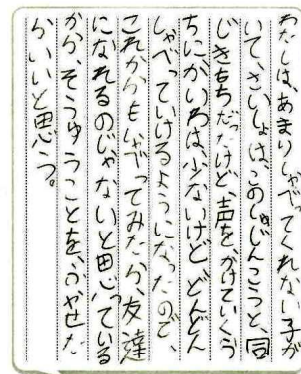 わたしは、あまりしゃべってくれない子が
いて、さいしょは、このしゅじんこうと、同
じきもちだったけど、声を、かけていくう
ちに、かいわは少ないけどどんどん
しゃべっていけるようになったので、
これからもしゃべってみたら、友達
になれるのじゃないと思っている
から、そうゆうことを、ふやせた
らいいと思う。